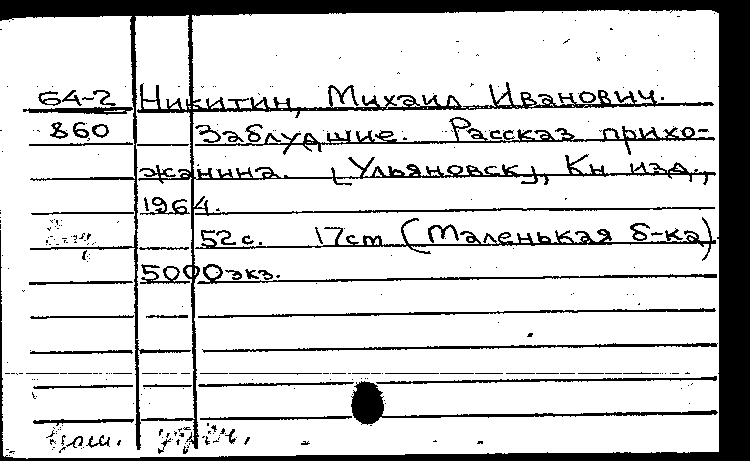 64-2 Никитин, Михаил Иванович.
860 Заблудшие. Рассказ прихо-
жанина. [Ульяновск], Кн изд.,
1964.
52 с. 17cm (Маленькая б-ка)
5000 экз.